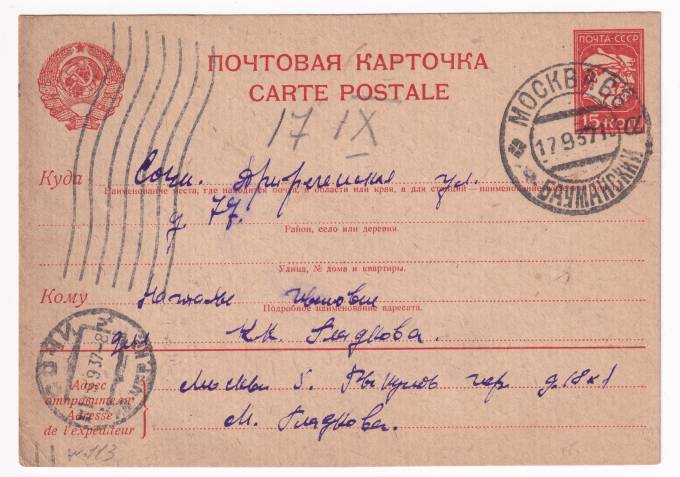 ПОЧТА-СССР
ПОЧТОВАЯ КАРТОЧКА
CARTE POSTALE
15 КОП
МОСКВА
17.9.37
БАУМАНСКИЙ
17 IX
Куда Сочи. ул.
Наименование места, где находится почта, и области или края, а для станций—наименование
д. 77.
Район, село или деревня.
Улица, № дома и квартиры.
Кому
Подробное наименование адресата.
К.К. Гладкова.
9.37
Адрес отправителя
Adresse de l'expéditeur
Москва 5. пер. д. 18 к 1
М. Гладкова.